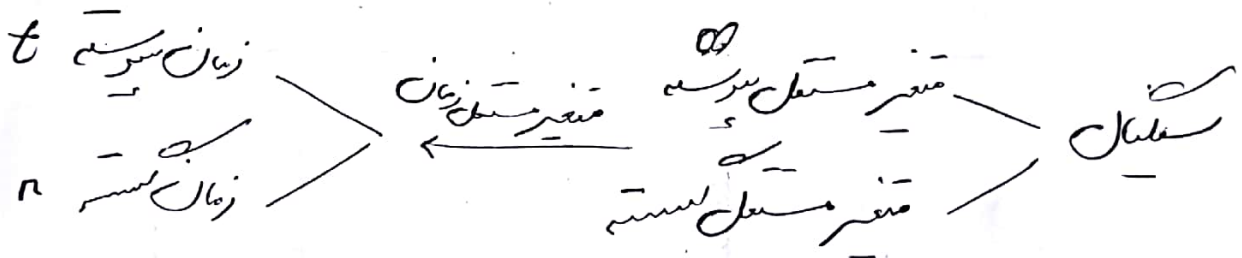 سیگنال
متغیر مستقل پیوسته
متغیر مستقل گسسته
متغیر مستقل زمان
زمان پیوسته t
زمان گسسته n